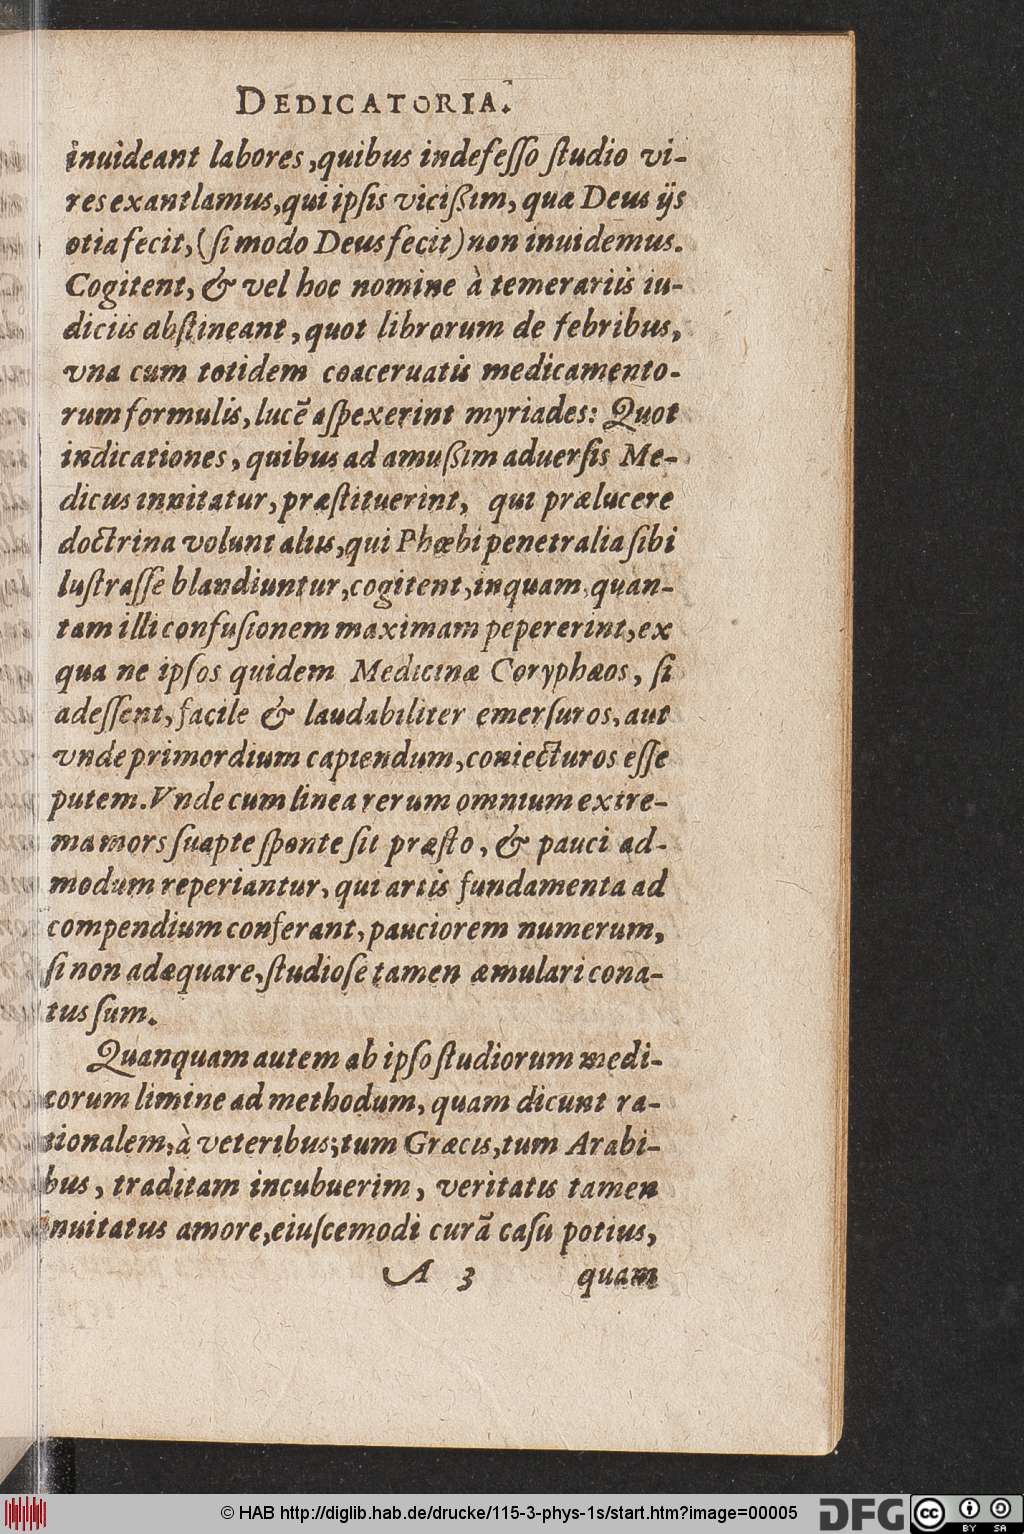 DEDICATORIA.
inuideant labores, quibus indefeſſo ſtudio vi-
res exantlamus, qui ipſis viciſſim, quæ Deus ijs
otia fecit, (ſi modo Deus fecit) non inuidemus.
Cogitent, & vel hoc nomine à temerariis iu-
diciis abſtineant, quot librorum de febribus,
vna cum totidem coaceruatis medicamento-
rum formulis, lucē aſpexerint myriades: Quot
indicationes, quibus ad amuſſim aduerſis Me-
dicus innitatur, præſtituerint, qui prælucere
doctrina volunt aliis, qui Phœbi penetralia ſibi
luſtraſſe blandiuntur, cogitent, inquam, quan-
tam illi confuſionem maximam pepererint, ex
qua ne ipſos quidem Medicinæ Coryphæos, ſi
adeſſent, facile & laudabiliter emerſuros, aut
vnde primordium capiendum, coniecturos eſſe
putem. Vnde cum linea rerum omnium extre-
ma mors ſuapte ſponte ſit præſto, & pauci ad-
modum reperiantur, qui artis fundamenta ad
compendium conferant, pauciorem numerum,
ſi non adæquare, ſtudioſe tamen æmulari cona-
tus ſum.
Quanquam autem ab ipſo ſtudiorum medi-
corum limine ad methodum, quam dicunt ra-
tionalem, à veteribus, tum Græcis, tum Arabi-
bus, traditam incubuerim, veritatis tamen
inuitatus amore, eiuſcemodi curā caſu potius,
A 3 quam
© HAB http://diglib.hab.de/drucke/115-3-phys-1s/start.htm?image=00005
DFG
cc BY SA